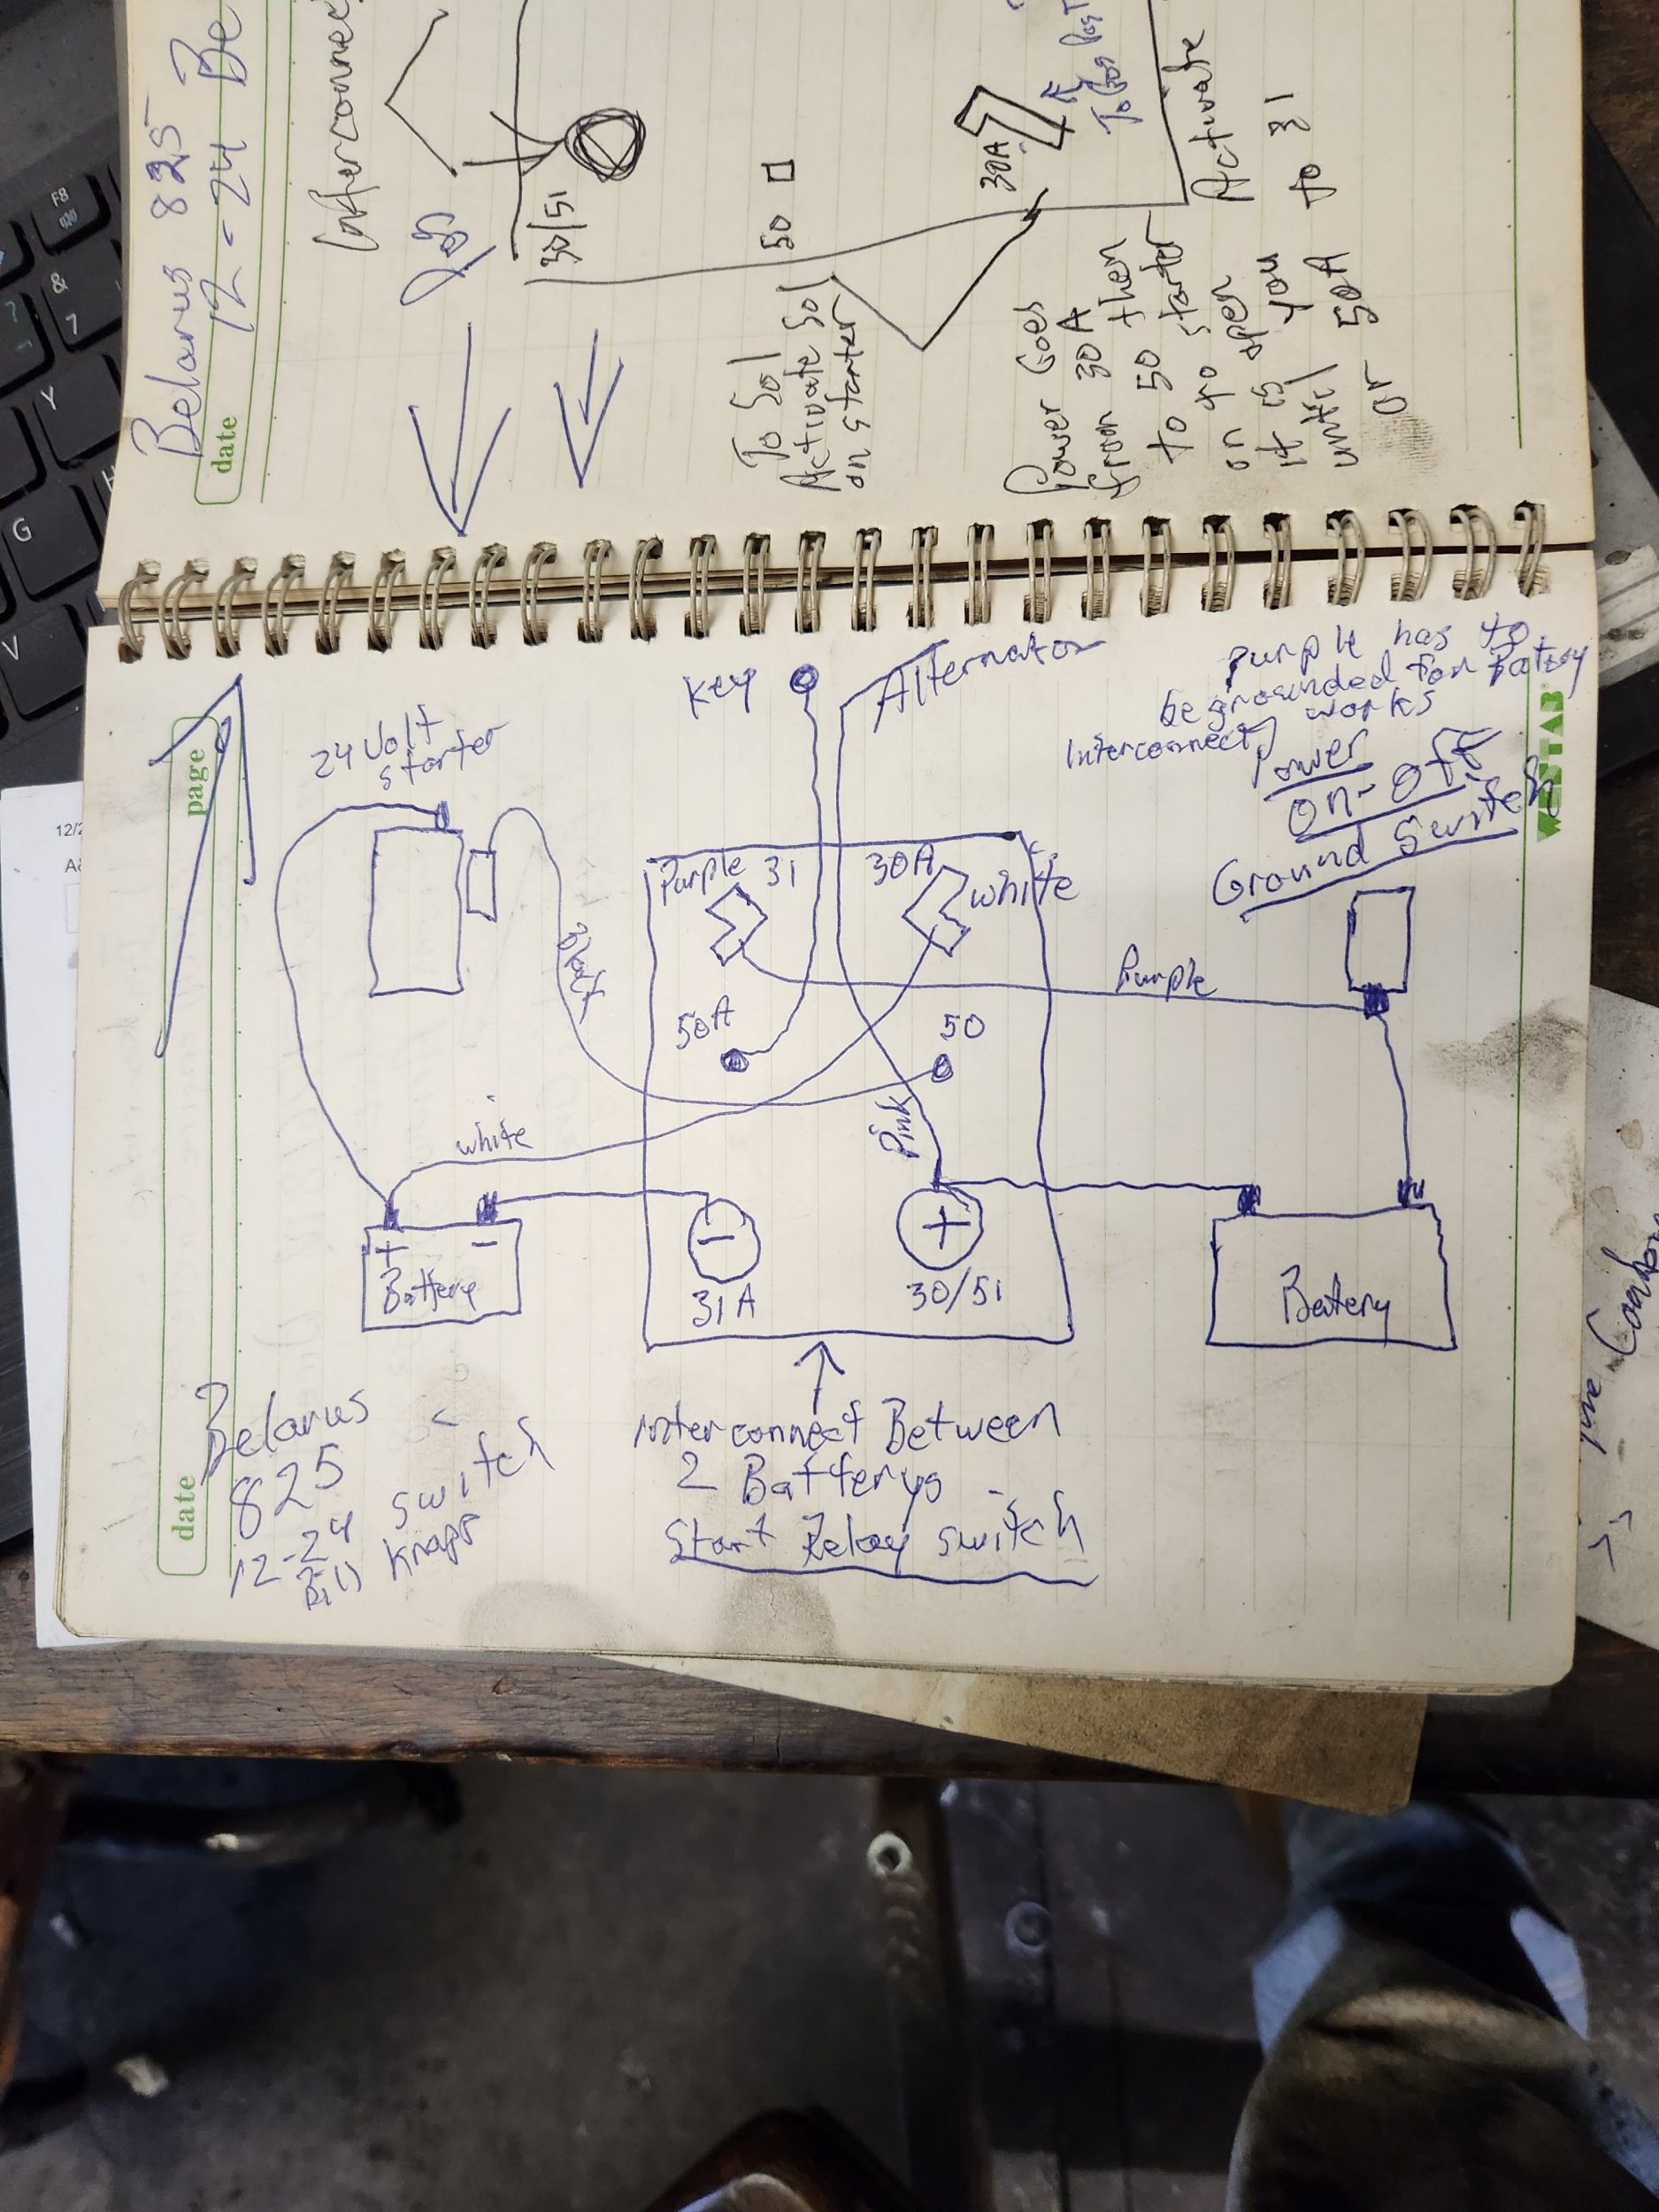 Belarus 825
12-24 Be
date
Interconnect
30/51
50
30A
To Sol
Activate Sol
on starter
Power Goes
from 30A
to 50 then
on to starter
it is open
until you
Activate
50A to 31
or
page
Key
Alternator
Purple has to
be grounded for Batery
Interconnect works
Power
On-Off
Ground Switch
24 Volt
starter
Purple 31
30A
white
Purple
50A
50
white
Pink
+ -
Battery
-
31A
+
30/51
Batery
Interconnect Between
2 Batterys
Start Relay switch
Belarus
825
12-24 switch
Bill Knapp
date
F8
&
7
Y
G
H
V
12/2